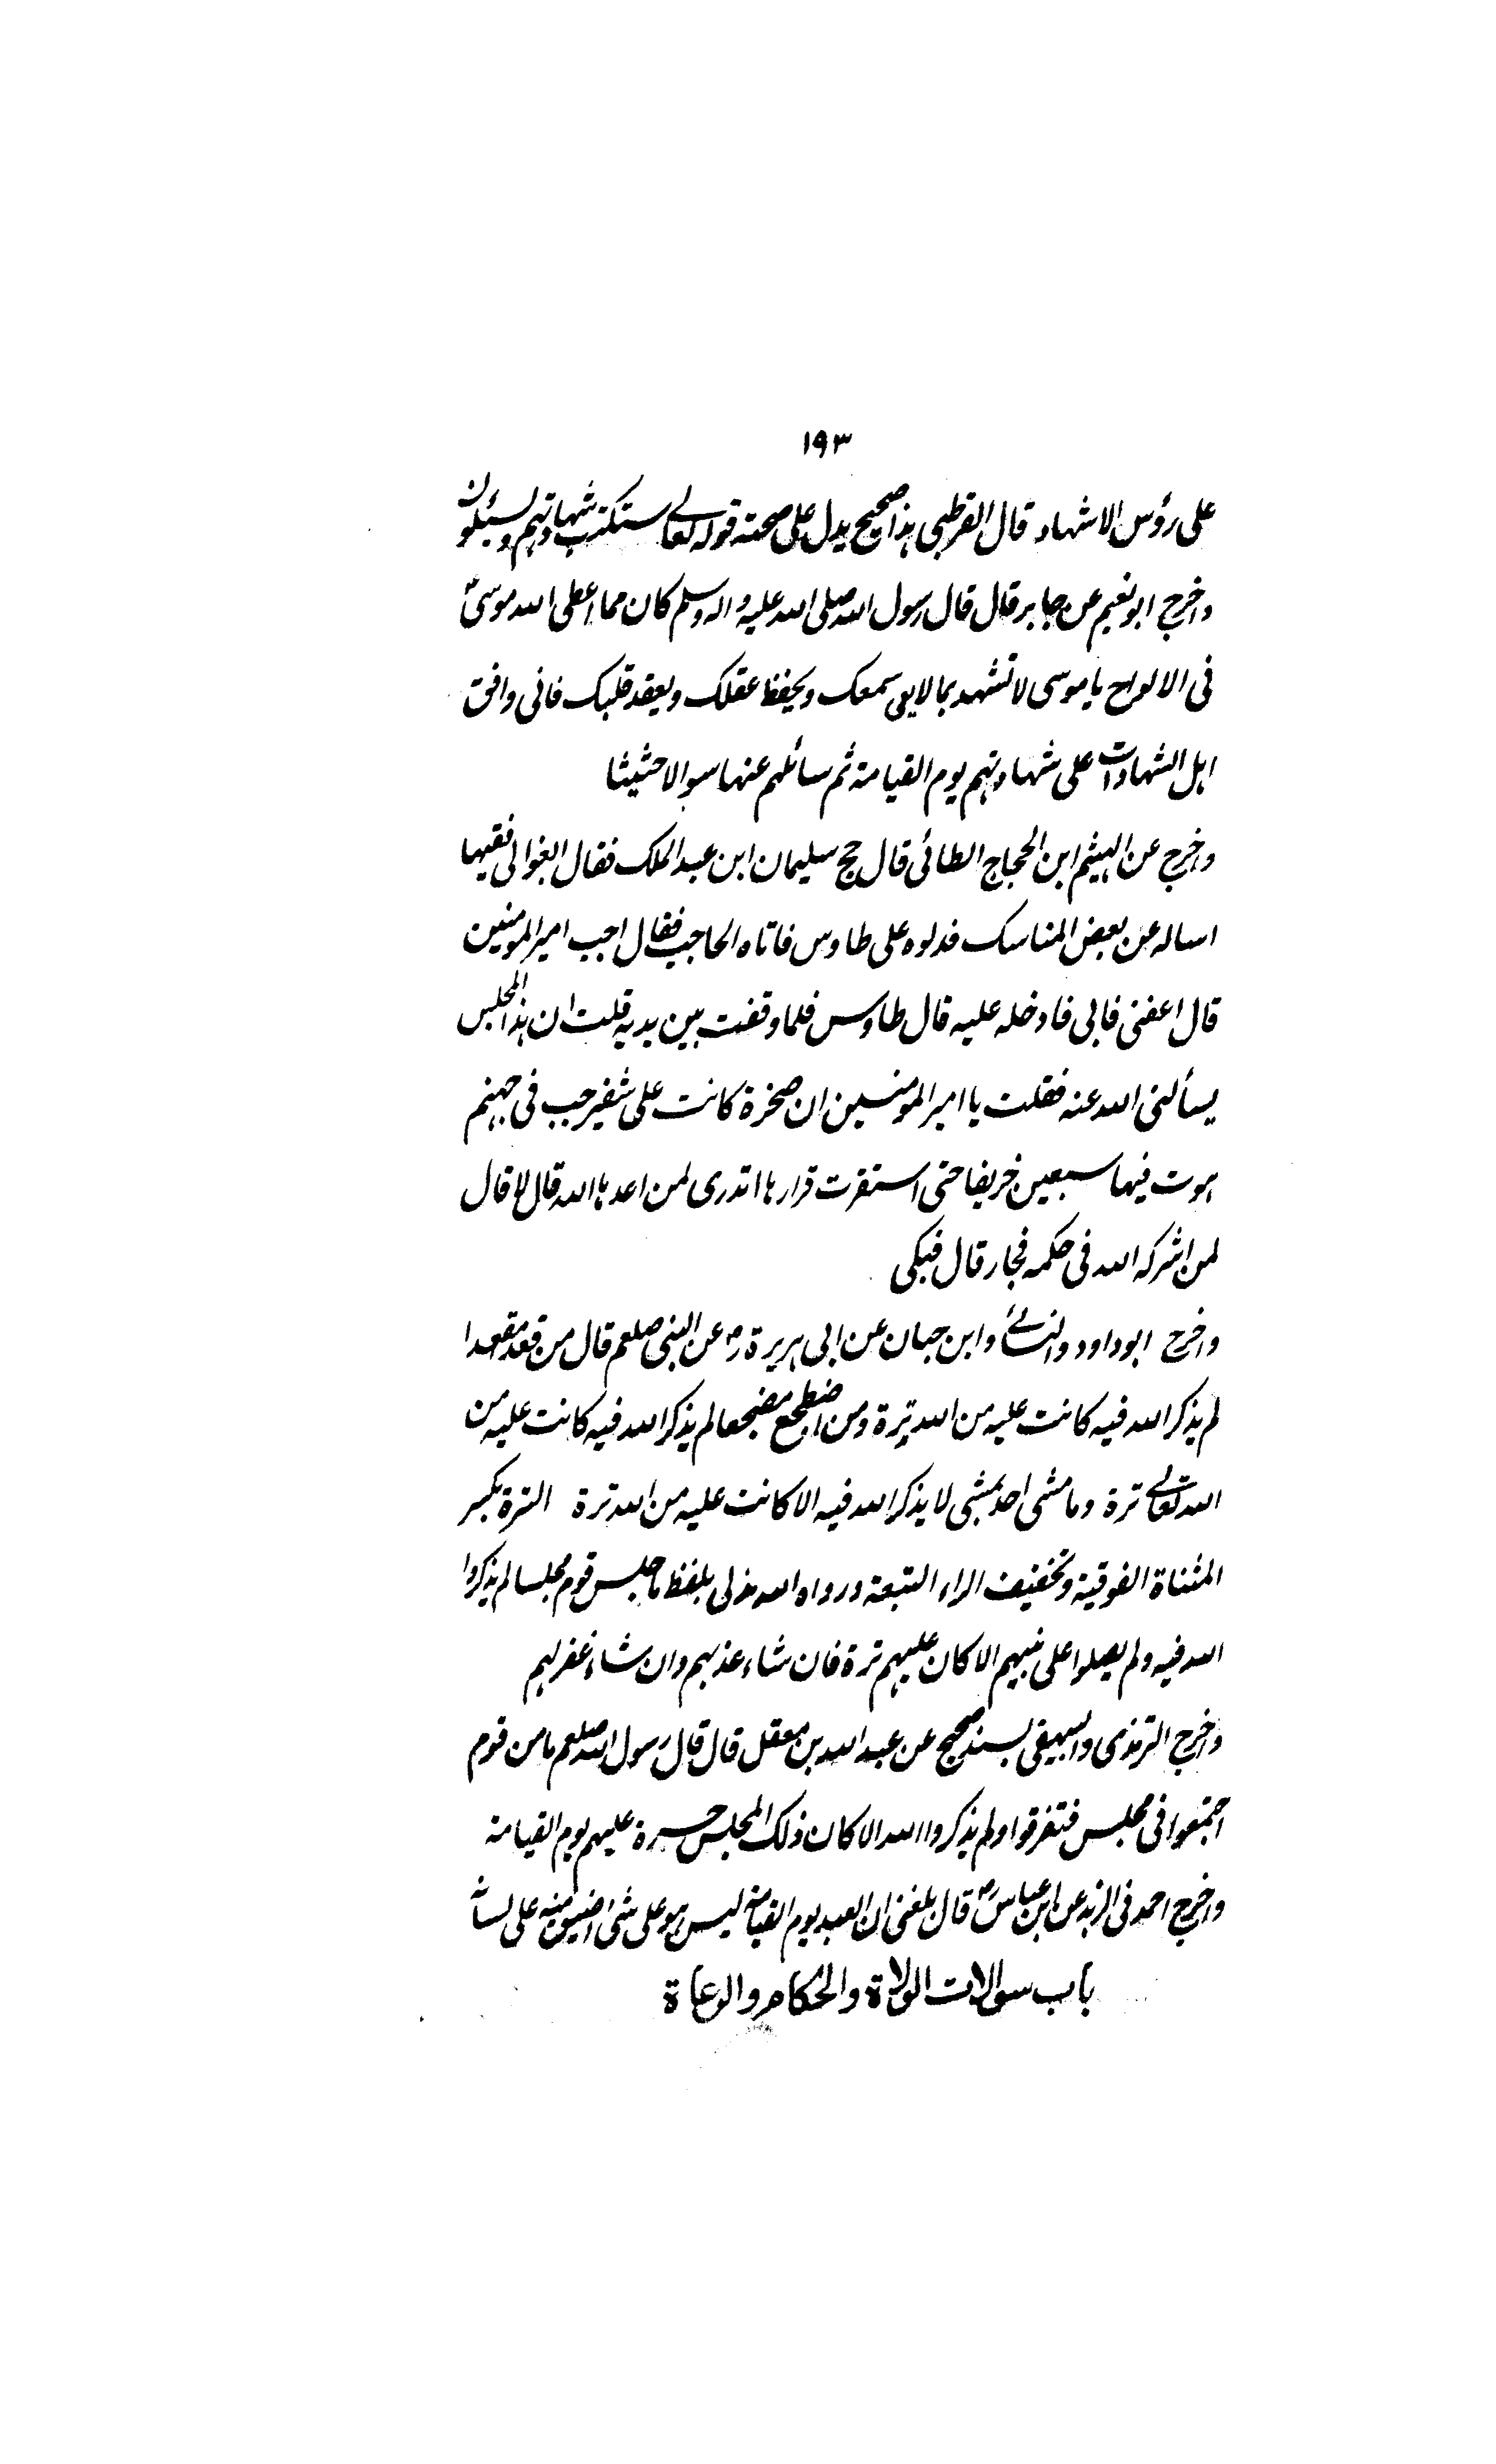 ١٩٣
على رؤس الاشهاد قال القرطبى هذا صحيح يدل على صحته قوله تعالى ستكتب شهادتهم ويسئلون
واخرج ابو نعيم عن جابر قال قال رسول الله صلى الله عليه واله وسلم كان مما اعطى الله موسى
فى الالواح يا موسى لا تشهد بما لا يعى سمعك ويحفظ عقلك ويعقد قلبك فانى واقف
اهل الشهادات على شهادتهم يوم القيامة ثم سائلهم عنها سوالا حثيثا
واخرج عن الهيثم ابن الحجاج الطائى قال حج سليمان ابن عبد الملك فقال ابغوا لى فقيها
اساله عن بعض المناسك فدلوه على طاوس فاتاه الحاجب فقال اجب امير المومنين
قال اعفنى فابى فادخله عليه قال طاوس فلما وقفت بين يديه قلت ان هذا المجلس
يسألنى الله عنه فقلت يا امير المومنين ان صخرة كانت على شفير جب فى جهنم
هوت فيها سبعين خريفا حتى استقرت قرارها اتدرى لمن اعدها الله قال لا قال
لمن اشركه الله فى حكمه فجار قال فبكى
واخرج ابوداود والنسائى وابن حبان عن ابى هريرة رض عن النبى صلعم قال من قعد مقعدا
لم يذكر الله فيه كانت عليه من الله ترة ومن اضطجع مضجعا لم يذكر الله فيه كانت عليه من
الله تعالى ترة وما مشى احد ممشى لا يذكر الله فيه الا كانت عليه من الله ترة الترة بكسر
المثناة الفوقية وتخفيف الراء التبعة ورواه الترمذى بلفظ ما جلس قوم مجلسا لم يذكروا
الله فيه ولم يصلوا على نبيهم الا كان عليهم ترة فان شاء عذبهم وان شاء غفر لهم
واخرج الترمذى والبيهقى بسند صحيح عن عبد الله بن معقل قال قال رسول الله صلعم ما من قوم
اجتمعوا فى مجلس فتفرقوا ولم يذكروا الله الا كان ذلك المجلس حسرة عليهم يوم القيامة
واخرج احمد فى الزهد عن ابن عباس قال بلغنى ان العبد يوم القيامة ليس هو على شئ اضيق منه على لسانه
باب سوالات الولاة والحكام والرعاة